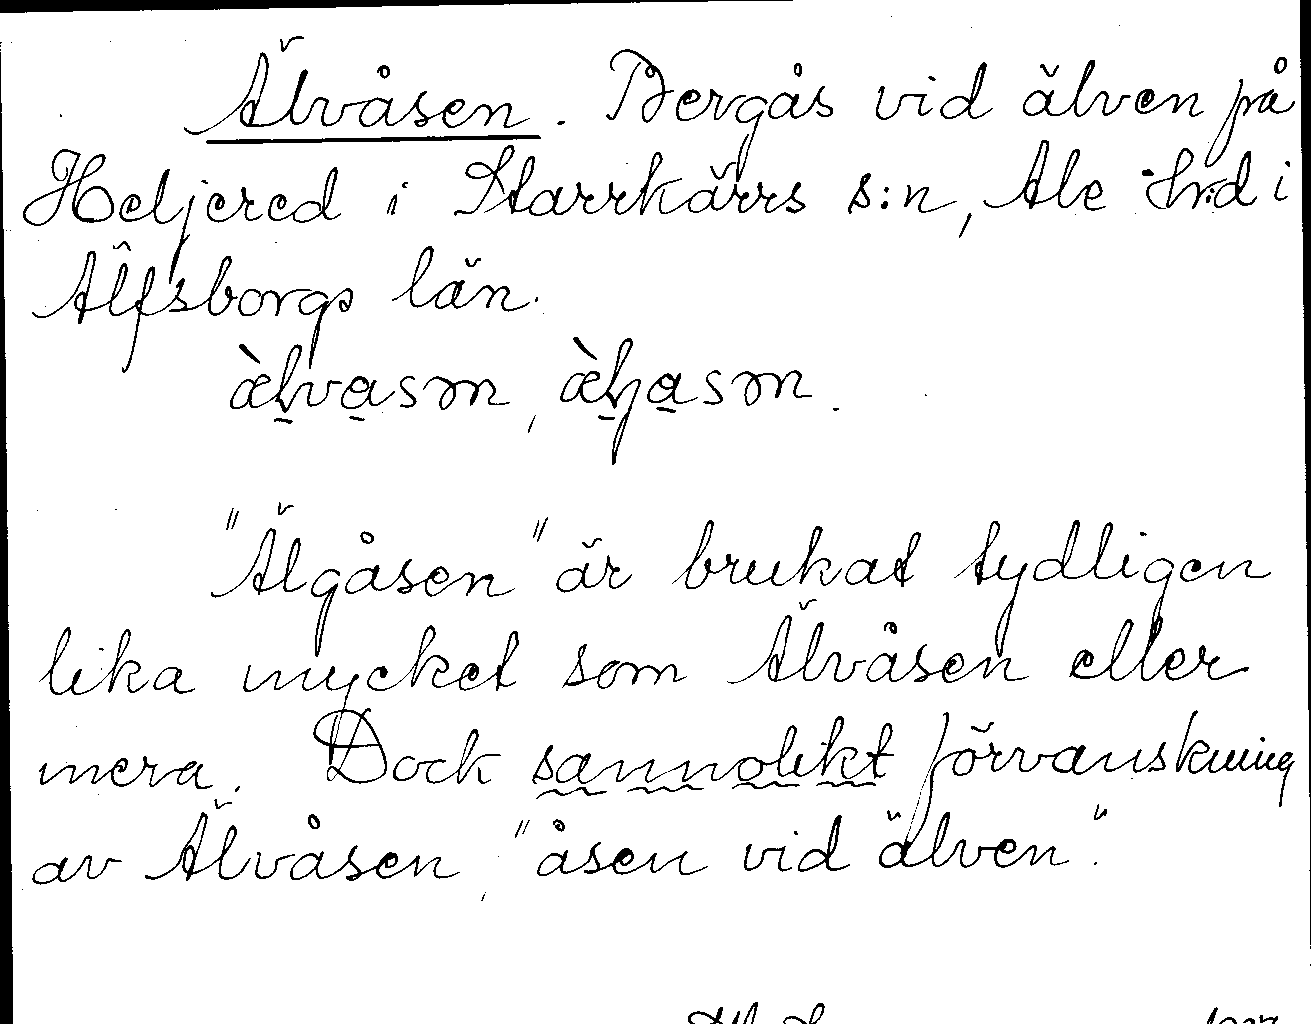 Älvåsen. Bergås vid älven på
Heljered i Starrkärrs s:n, Ale hrd i
Älfsborgs län.
"Älgåsen" är brukat tydligen
lika mycket som Älvåsen eller
mera. Dock sannolikt förvanskning
av Älvåsen, "åsen vid älven".